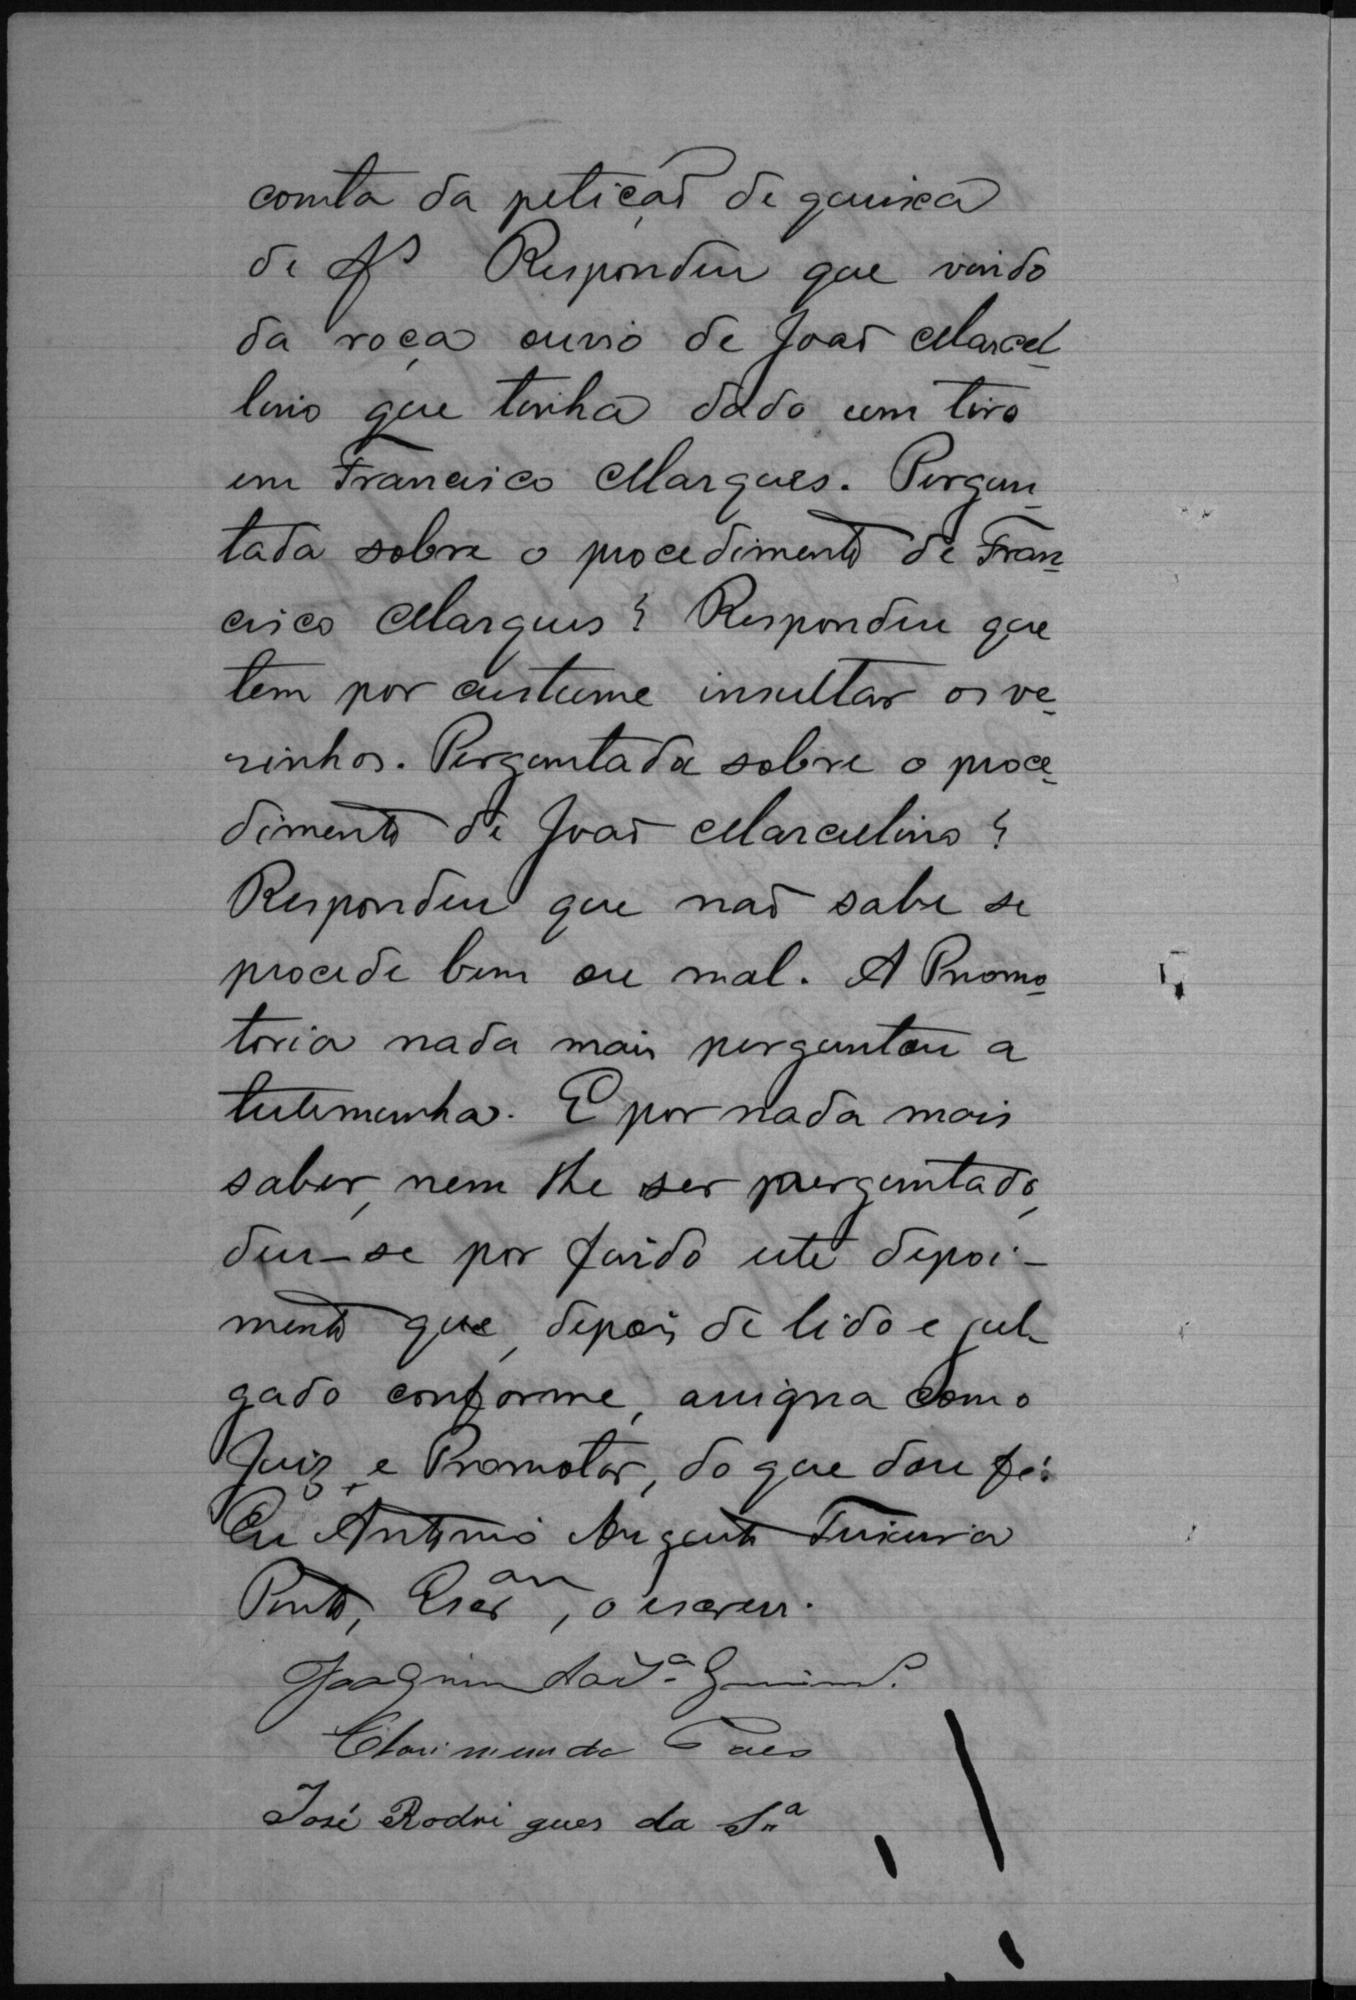 consta da petição de queixa
de fs Respondeu que vindo
da roça ouvio de João Marcel-
lino que tinha dado um tiro
em Francisco Marques. Pergun-
tada sobre o procedimento de Fran-
cisco Marques? Respondeu que
tem por custume insultar os ve-
sinhos. Perguntada sobre o proce-
dimento de João Marcellino?
Respondeu que não sabe se
procede bem ou mal. A Promo-
toria nada mais perguntou a
testemunha. E por nada mais
saber, nem lhe ser perguntado,
deu-se por findo este depoi-
mento que, depois de lido e jul-
gado conforme, assigna com o
Juiz, e Promotor, do que dou fé.
Eu Antonio Augusto Teixeira
Pinto, Escram, o escrevi.
Joaquim da Sa
Clarimundo Paes
José Rodrigues da Sa